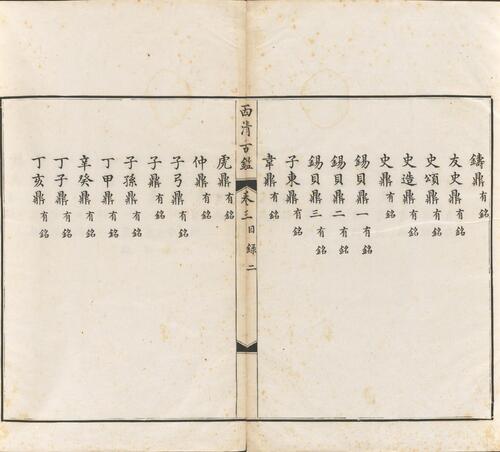 鑄鼎有銘
友史鼎有銘
史頌鼎有銘
史造鼎有銘
史鼎有銘
錫貝鼎一有銘
錫貝鼎二有銘
錫貝鼎三有銘
子東鼎有銘
韋鼎有銘
西清古鑑 卷三目錄 二
虎鼎有銘
仲鼎有銘
子弓鼎有銘
子鼎有銘
子孫鼎有銘
丁甲鼎有銘
辛癸鼎有銘
丁子鼎有銘
丁亥鼎有銘